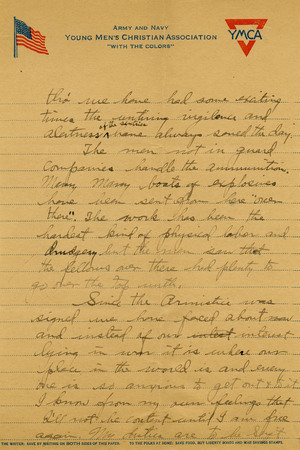 ARMY AND NAVY
YOUNG MEN'S CHRISTIAN ASSOCIATION
"WITH THE COLORS"
YMCA
tho' we have had some exciting
times the untiring vigilence and
of the sentries
alertness have always saved the day.
The men not in guard
companies handle the ammunition.
Many Many boats of explosives
have been sent from here "over
there". The work has been the
hardest kind of physical labor and
drudgery but the men saw that
the fellows over there had plenty to
go over the top with.
Since the Armistice was
signed we have faced about
and instead of our interest
lying in war it is where our
place in the world is and every
one is so anxious to get out of it.
I know from my own feelings that
I'll not be content until I am free
again. My duties are to be Sergt
TO THE WRITER: SAVE BY WRITING ON BOTH SIDES OF THIS PAPER.
TO THE FOLKS AT HOME: SAVE FOOD, BUY LIBERTY BONDS AND WAR SAVINGS STAMPS.